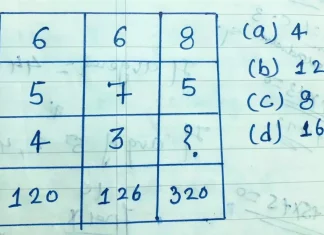 6 6 8 (a) 4
5 7 5 (b) 12
4 3 ? (c) 8
120 126 320 (d) 16